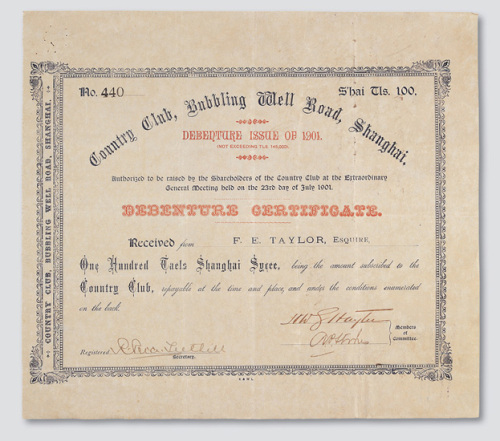 No. 440
S'hai Tls. 100.
Country Club, Bubbling Well Road, Shanghai.
DEBENTURE ISSUE OF 1901.
Authorized to be raised by the Shareholders of the Country Club at the Extraordinary
General Meeting held on the 23rd day of July 1901.
DEBENTURE CERTIFICATE.
Received from F. E. TAYLOR, ESQUIRE
One Hundred Taels Shanghai Sycee, being the amount subscribed to the
Country Club, repayable at the time and place, and under the conditions enumerated
on the back.
Members
of
Committee.
Registered
Secretary.
COUNTRY CLUB, BUBBLING WELL ROAD, SHANGHAI.